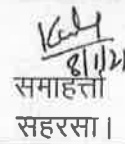 8/1/21
समाहर्त्ता
सहरसा।